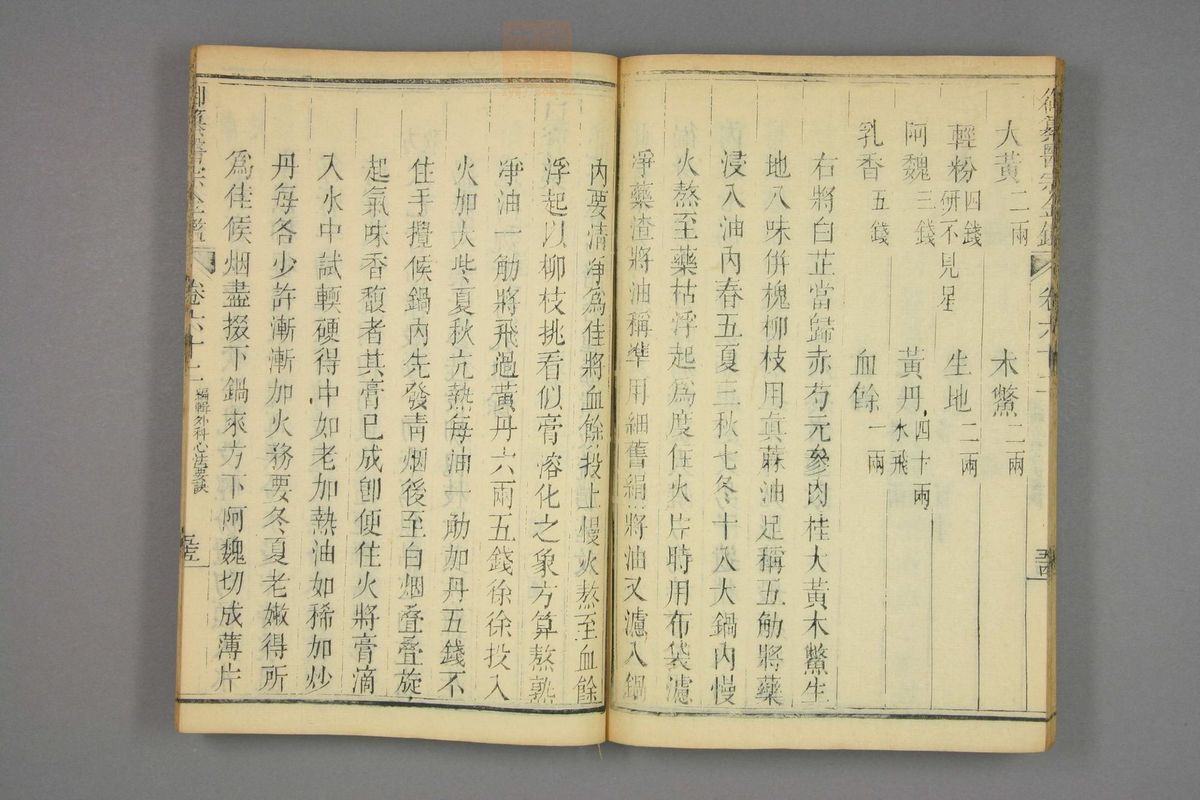 御纂醫宗金鑑 卷六十二 五十四
大黃二兩 木鱉二兩
輕粉四錢研不見星 生地二兩
阿魏三錢 黃丹四十兩水飛
乳香五錢 血餘一兩
右將白芷當歸赤芍元參肉桂大黃木鱉生
地八味併槐柳枝用真蔴油足稱五觔將藥
浸入油內春五夏三秋七冬十入大鍋內慢
火熬至藥枯浮起為度住火片時用布袋濾
淨藥渣將油稱準用細舊絹將油又濾入鍋
內要清淨為佳將血餘投上慢火熬至血餘
浮起以柳枝挑看似膏溶化之象方算熬熟
淨油一觔將飛過黃丹六兩五錢徐徐投入
火加大些夏秋亢熱每油一觔加丹五錢不
住手攪候鍋內先發青烟後至白烟叠叠旋
起氣味香馥者其膏已成卽便住火將膏滴
入水中試輭硬得中如老加熱油如稀加炒
丹每各少許漸漸加火務要冬夏老嫩得所
為佳候烟盡掇下鍋來方下阿魏切成薄片
御纂醫宗金鑑 卷六十二 編輯外科心法要訣 五十五